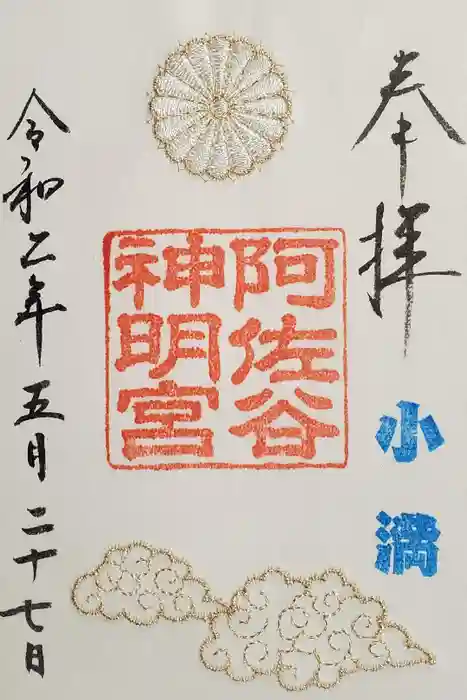 奉拝
小満
阿佐谷
神明宮
令和二年五月二十七日